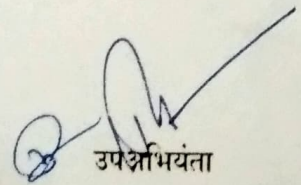 उपअभियंता